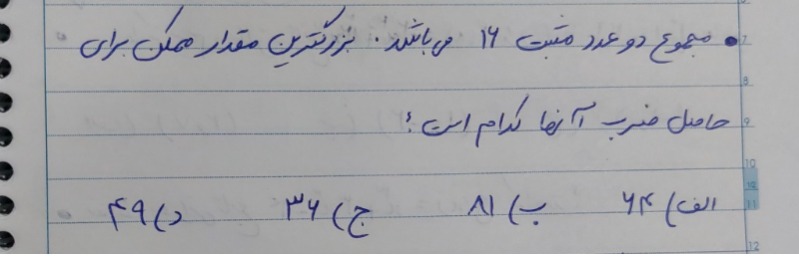 • مجموع دو عدد مثبت ۱۶ می‌باشد. بزرگترین مقدار ممکن برای
حاصل ضرب آنها کدام است؟
الف) ۶۴ ب) ۸۱ ج) ۳۶ د) ۴۹
7
8
9
10
11
12